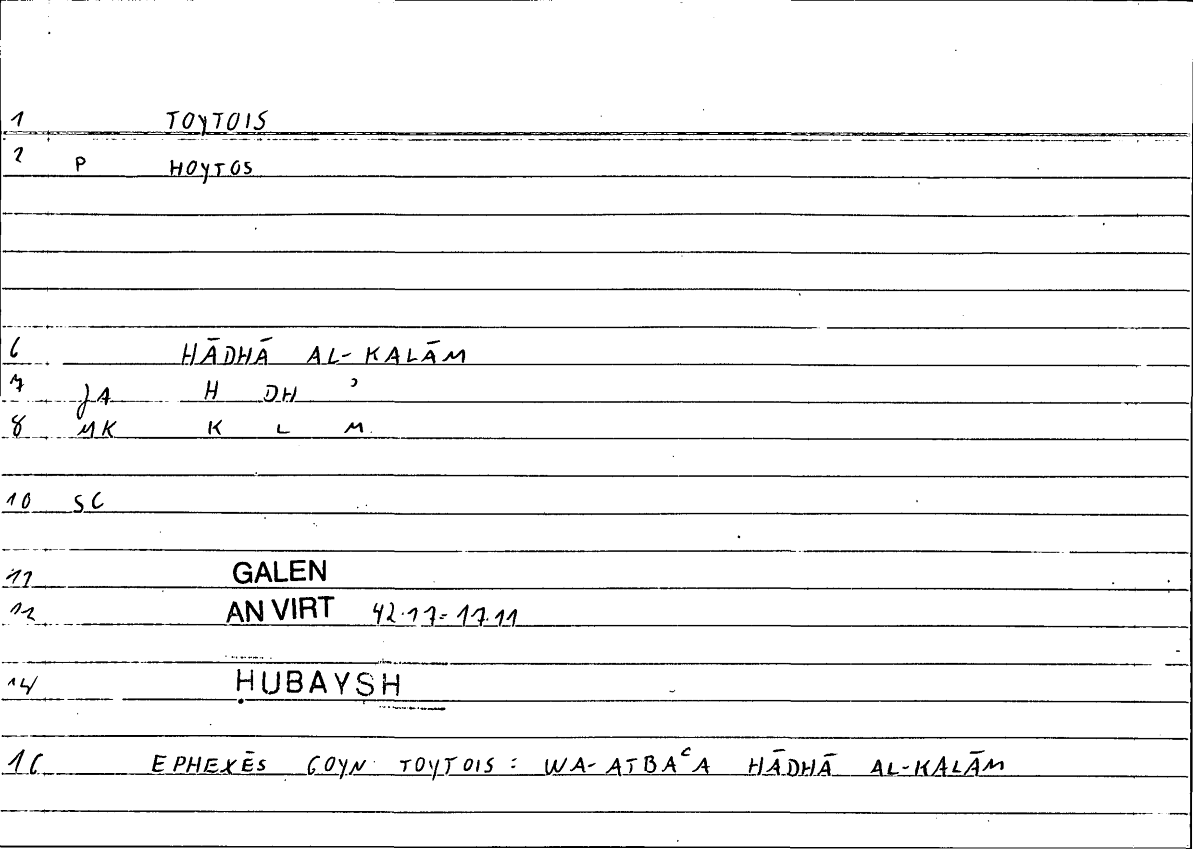 1 TOYTOIS
2 P HOYTOS
6 HĀDHĀ AL-KALĀM
7 JA H DH ʾ
8 MK K L M
10 SC
11 GALEN
12 AN VIRT 42.17 = 17.11
14 ḤUBAYSH
16 EPHEXĒS GOYN TOYTOIS : WA-ATBAʿA HĀDHĀ AL-KALĀM